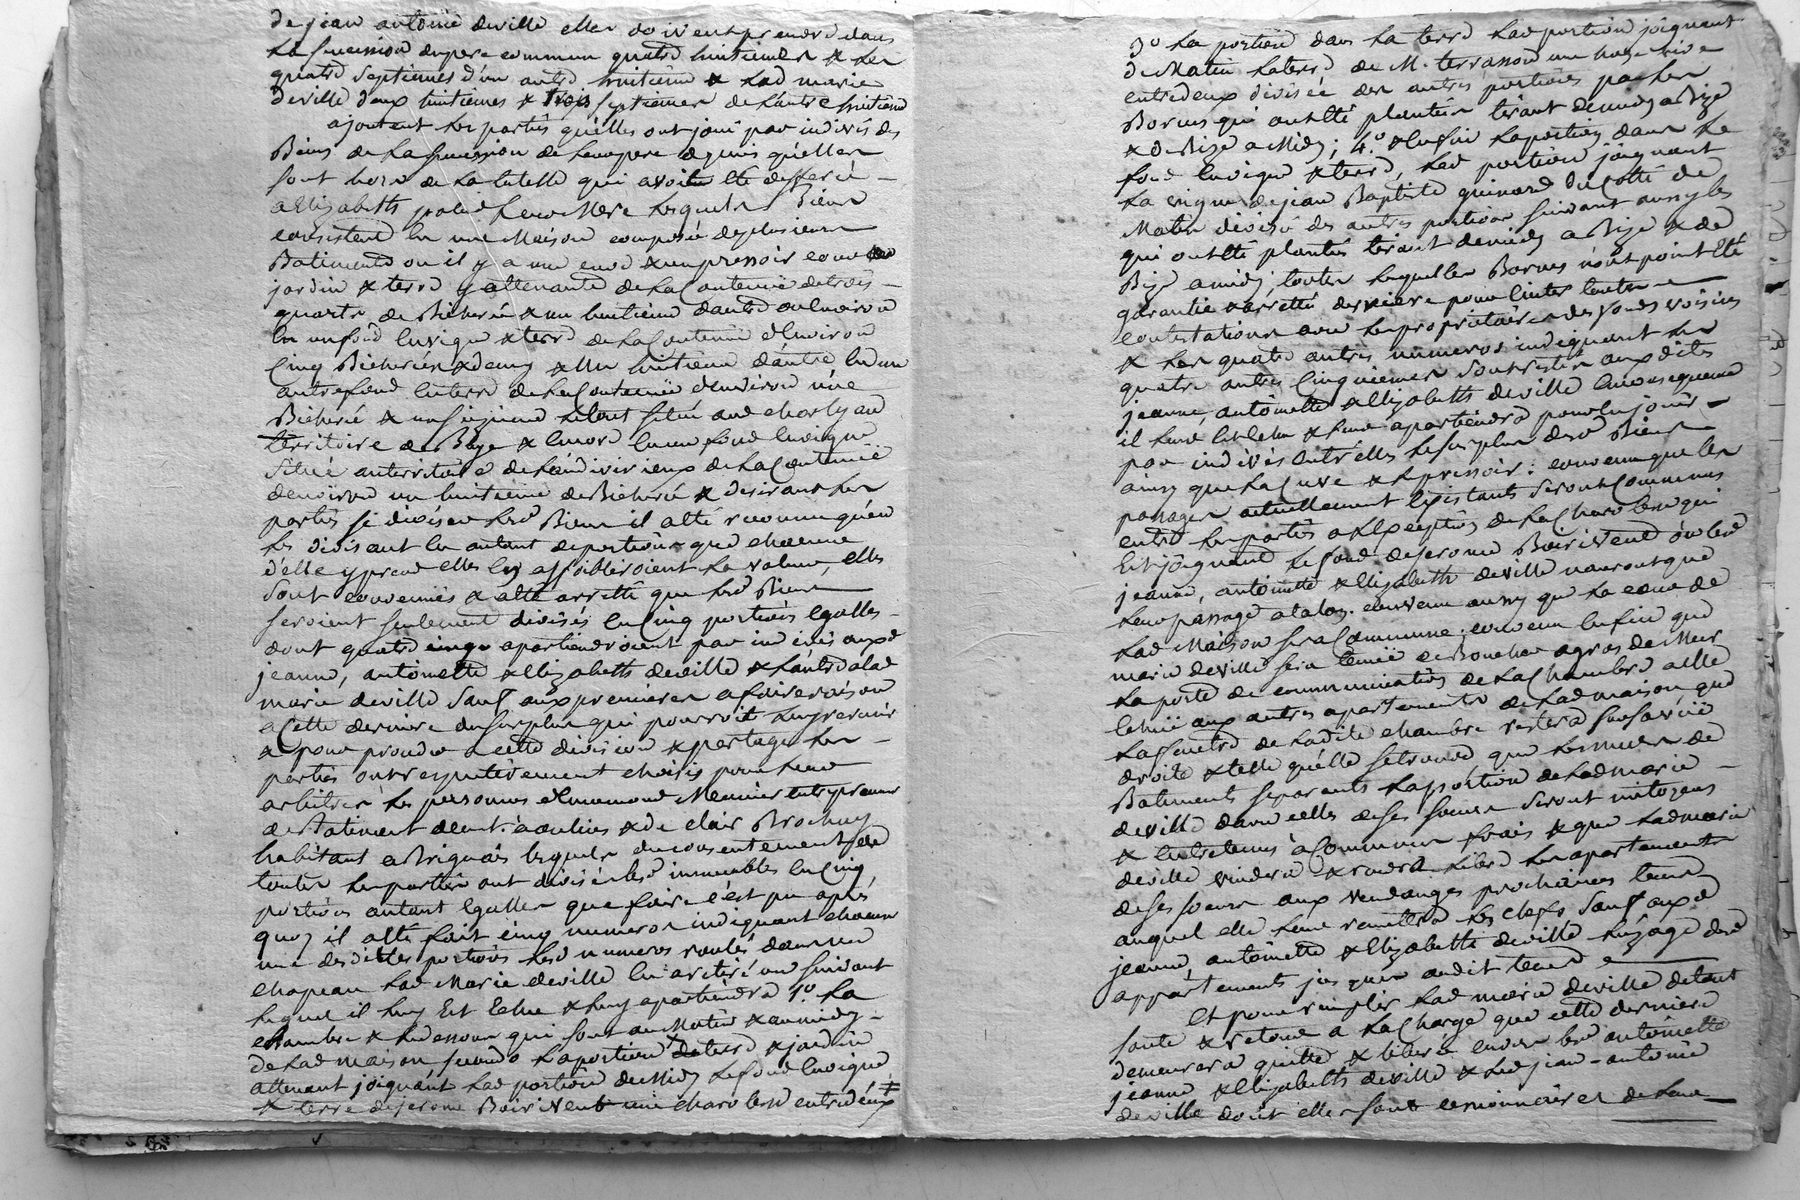 de jean antoine deville elles doivent prendre dans
la succession du pere commun quatre huitiemes & les
quatre septiemes d'un autre huitieme & lad marie
deville deux huitiemes & trois septiemes de l'autre huitieme
ajoutent les parties qu'elles ont joui par indivis des
Biens de la succession de leur pere depuis qu'elles
sont hors de la tutelle qui avoit eté defferé
a Elizabeth leur Mere lesquels Biens
consistent en une Maison composée de plusieurs
Batiments ou il y a une cuve & un pressoir cour
jardin & terre y attenante de la Contenuë de trois
quarts de Bicherée & un huitieme d'autre ou environ
en un fond en vigne & terre de la Contenuë d'Environ
Cinq Bicherées & demy & Un huitieme d'autre en un
autre fond en terre de la Contenuë d'environ une
Bicherée & un sixieme le tout situé aud charly au
territoire de & encore en un fond en vigne
situé au territoire de de la Contenuë
d'environ un huitieme de Bicherée & desirant les
parties se diviser lesd Biens il a été reconnu qu'en
les divisant en autant de portions que chacune
d'elle y prend elles en affoibliroient la valeur, elles
sont convenuës & a été arretté que lesd Biens
seroient seulement divisés en Cinq portions egalles
dont quatre apartiendroient par indivis auxd
jeanne, antoinette & Elizabeth deville & l'autre a lad
marie deville sauf aux premieres a faire raison
a Cette derniere du surplus qui pourroit luy revenir
& pour proceder a cette division & partage les
parties ont respectivement choisis pour leurs
arbitres les personnes d'Ennemond Meunier entrepreneur
de Batiment demt. a oulins & de clair Brochay
habitant a Brignais lesquels du consentement de
toutes les parties ont divisé lesd immeubles en Cinq
portions autant egalles que faire c'est pu aprés
quoy il a été fait cinq numeros indiquant chacun
une desdittes portions lesd numeros roulés dans un
chapeau lad Marie deville en a retiré un suivant
lequel il luy Est Echu & luy apartiendra 1.º La
chambre & le dessous qui sont au Matin & au midy
de lad maison secundo la portion de terre & jardin
attenant joignant lad portion de Midy le fond en vigne
& terre de jerome Boiriveut une charoliere entredeux
3º La portion dans la terre lad portion joignant
de Matin la terre de M. terrasson une haye vive
entredeux divisée des autres portions par les
Bornes qui ont été plantées tirant de midy a Bize
& de Bize a Midy; 4.º & enfin la portion dans le
fond en vigne & terre, lad portion joignant
la vigne de jean Baptiste guinand du Côté de
Matin divisée des autres portions suivant aussy les
qui ont été plantés tirant de midy a Bize & de
Bize a midy, toutes lesquelles Bornes n'ont point été
garantie & arretté derriere pour eviter toutes
contestations avec les proprietaires des fonds voisins
& les quatre autres numeros indiquant les
quatre autres Cinquiemes sont restés aux dites
jeanne, antoinette & Elizabeth deville en consequence
il leur est echu & leur apartiendra pour en jouir
par indivis entr'elles le surplus desd Biens
ainsy que la Cuve & le pressoir: convenu que les
passages actuellement Existants seront Communs
entre les parties a l'Exception de la Charoliere qui
Est joignant le fond de jerome Boiriveut où lesd
jeanne, antoinette & Elizabeth deville n'auront que
leur passage a talon. convenu aussy que la cour de
lad Maison sera Commune; convenu enfin que
marie deville sera tenuë de Boucher a gros de Mur
la porte de communication de la Chambre a elle
échuë aux autres apartements de lad maison que
la fenetre de ladite chambre restera sous sa vuë
droite & telle qu'elle se trouve, que les murs de
Batiments separants la portion de lad marie
deville d'avec celles de ses soeurs seront mitoyens
& Entretenus à Commun frais & que lad marie
deville vuidera & rendra libre les apartements
de ses soeurs aux vendanges prochaines temps
auquel elle leur remettra les clefs sauf auxd
jeanne, antoinette & Elizabeth deville l'usage desd
appartements jusques audit temps
Et pour remplir lad marie deville de tout
soute & retour a la Charge que cette derniere
demeurera quitte & libérée envers lesd antoinette
jeanne & Elizabeth deville & led jean-antoine
deville dont elles sont cessionnaires de leur